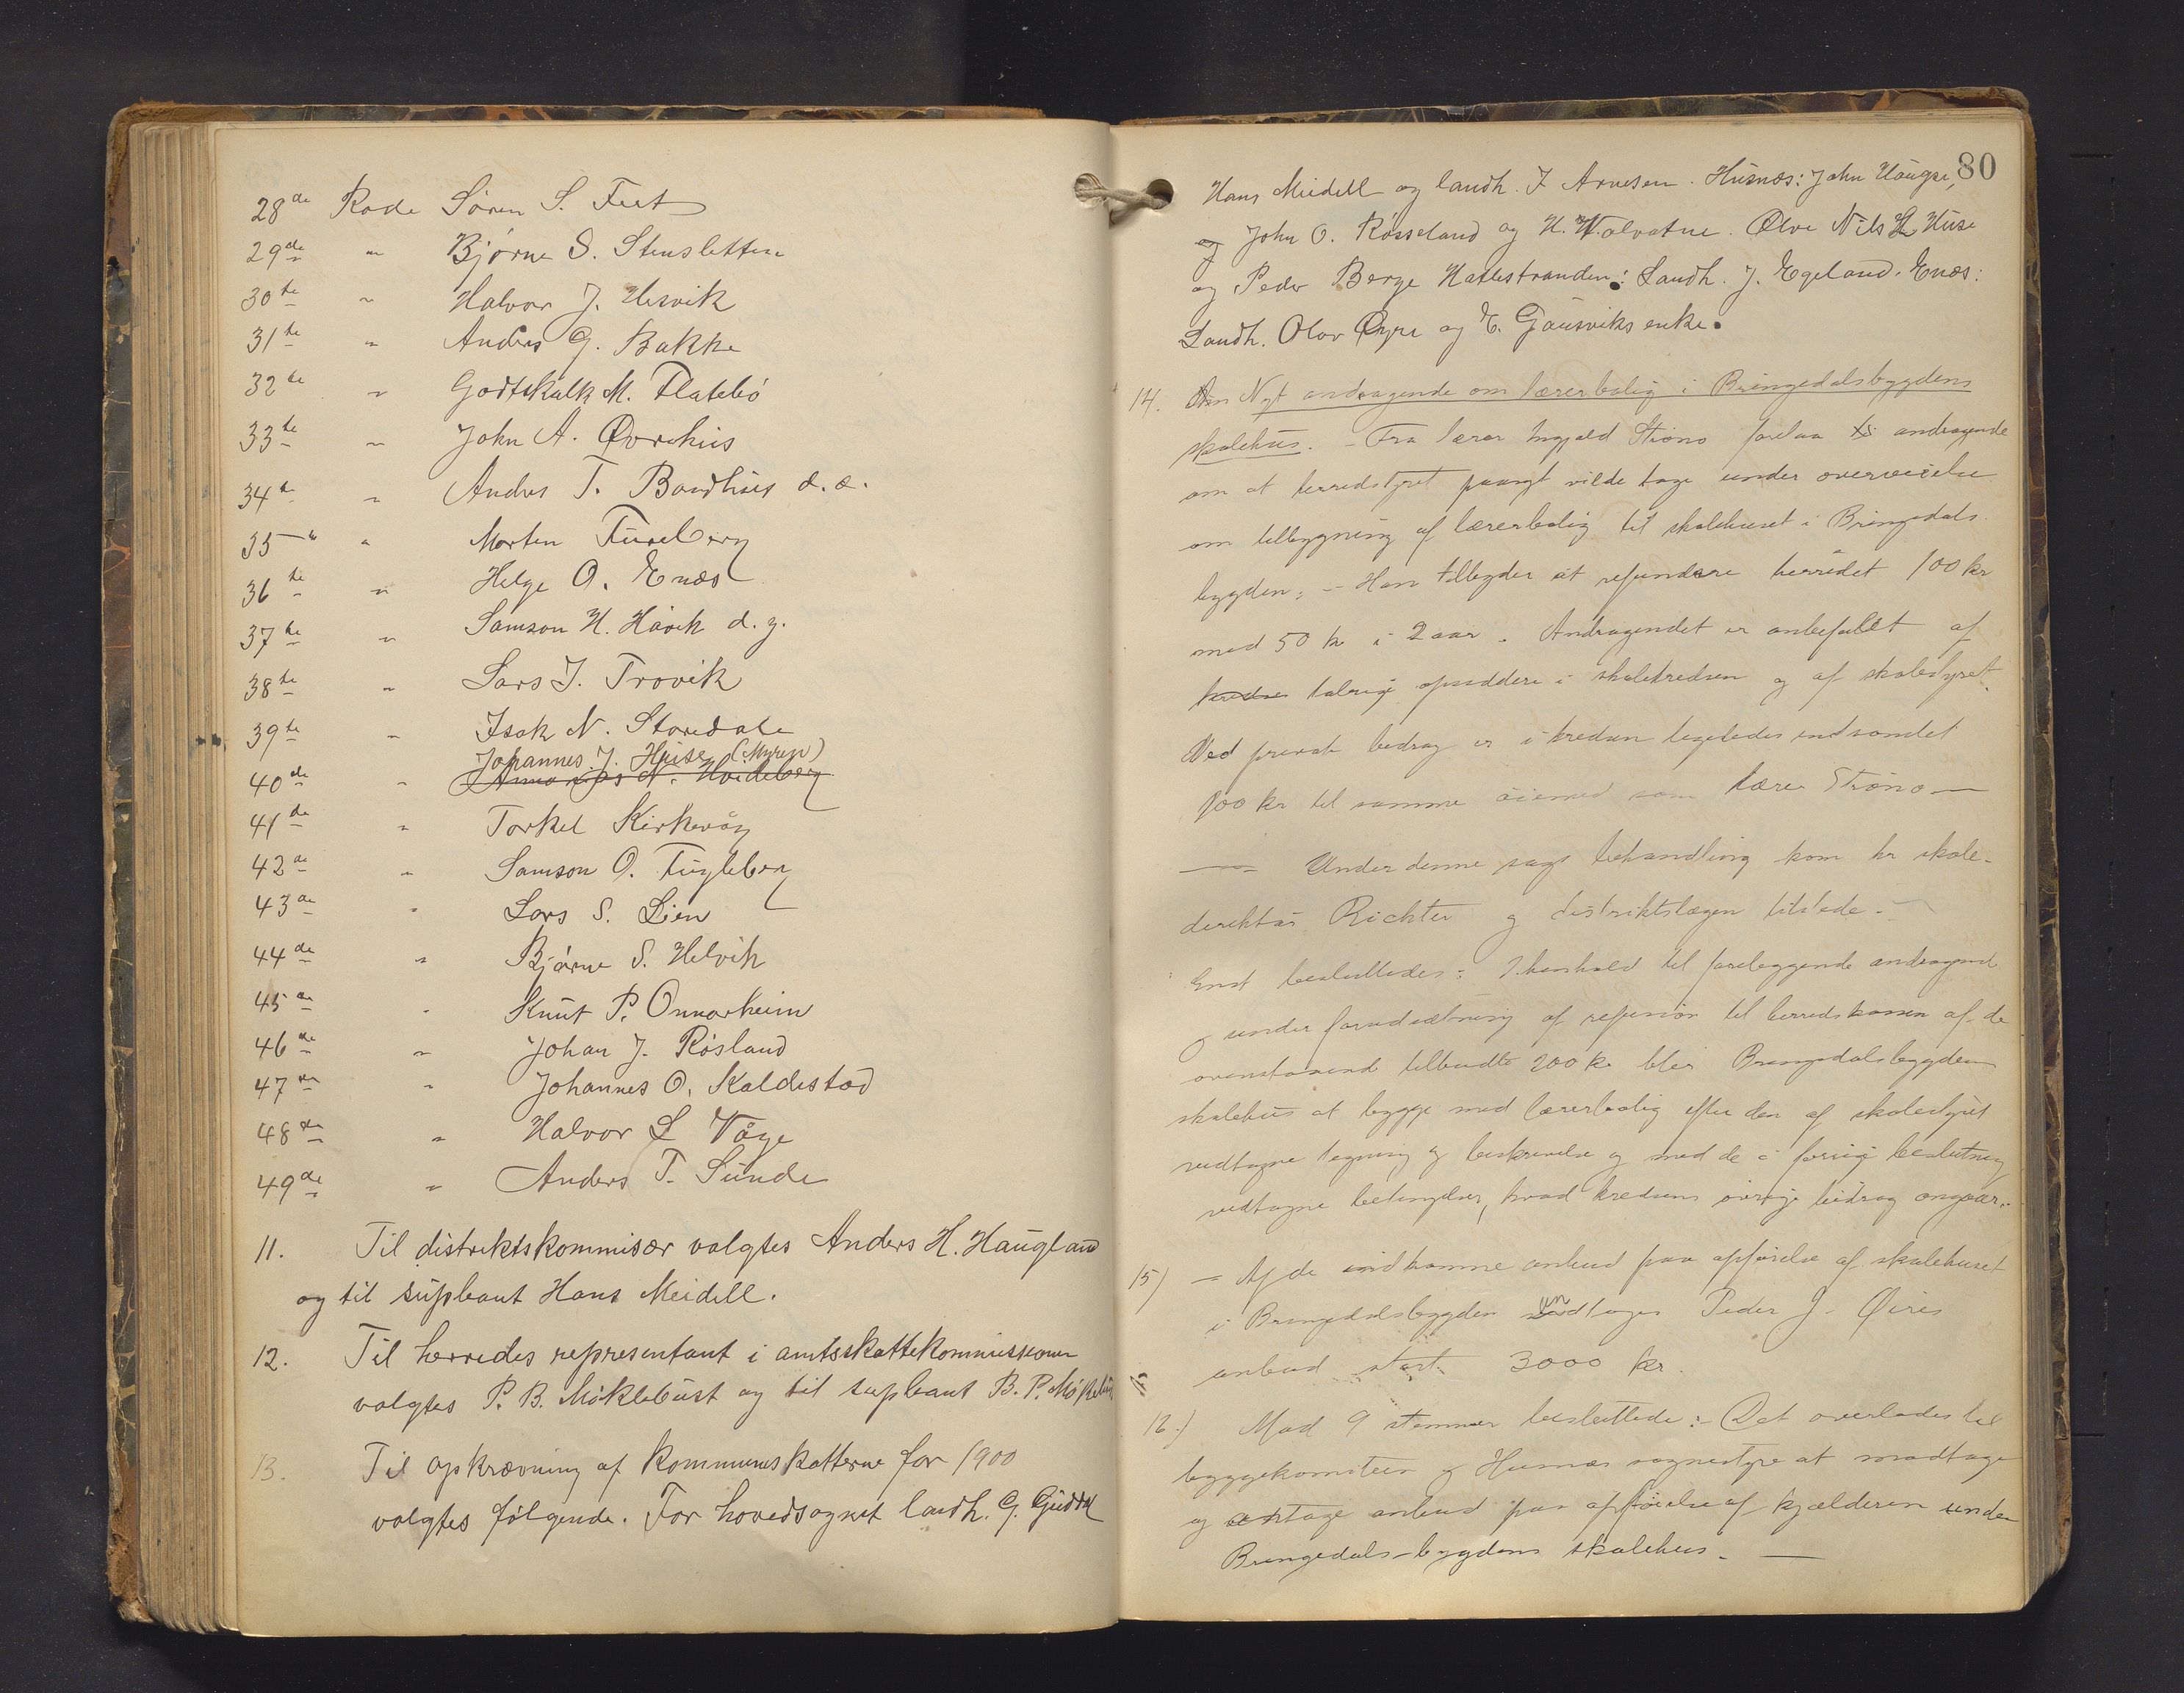 28de Rode Søren S. Feet
29de " Bjørne S. Stensletten
30te " Halvor J. Uskvik
31te " Anders G. Bakke
32te " Godtskalk M. Flatebø
33te " John A. Øvrehus
34te " Anders T. Bondhus d. æ.
35te " Morten Fureberg
36te " Helge O. Enæs
37te " Samson H. Håvik d. y.
38te " Lars J. Trovik
39te " Isak N. Storedale
Johannes J. Huse (Myren)
40de " N. Hvideberg
41de " Torkel Kirkevåg
42de " Samson O. Fugleberg
43de " Lars S. Lien
44de " Bjørne S. Helvik
45de " Knut P. Onnarheim
46de " Johan J. Røsland
47de " Johannes O. Kaldestad
48de " Halvor L Våge
49de " Anders T. Sunde
11. Til distriktskommisær valgtes Anders H. Haugland
og til supleant Hans Meidell.
12. Til herredes representant i amtsskattekommissionen
valgtes P. B. Møklebust og til supleant B. P. Møklebust
13. Til opkrævning af kommuneskatterne for 1900
valgtes følgende. For hovedsognet landh. G. Guddal
80
Hans Meidell og landh. I. Arnesen. Husnæs: John Hauge,
og John O. Røsseland og H. Valvatne. Ølve Nils L Huse
og Peder Berge Hatlestranden: Landh. J. Egeland. Enæs:
Landh. Olav Øyre og E. Gausviks enke.
14. Nyt andragende om lærerbolig i Bringedalsbygdens
skolehus. - Fra lærer Ingjald Strøno forelaa andragende
om at herredstyret paanyt vilde tage under overveielse
om tilbygning af lærerbolig til skolehuset i Bringedals
bygden. - Han tilbyder at refundere herredet 100 kr
med 50 kr i 2 aar. Andragendet er anbefalet af
kredsen talrige opsiddere i skolekredsen og af skolestyret.
Ved private bidrag er i kredsen ligeledes indsamlet
100 kr til samme øiemed som lærer Strøno —
— Under denne sags behandling kom hr skole-
direktør Richter og distriktslægen tilstede. -
Enst besluttedes: I henhold til foreliggende andragende
og under forudsætning af refusion til herredskassen af de
ovenstaaende tilbudte 200 kr blir Bringedalsbygdens
skolehus at bygge med lærerbolig efter den af skolestyret
vedtagne tegning og beskrivelse og med de i forrige beslutning
vedtagne betingelser, hvad kredsens øvrige bidrag angaar.
15) - Af de indkomne anbud paa opførelse af skolehuset
i Bringedalsbygden antages Peder J. Øires
anbud stort 3000 kr.
16.) Mod 9 stemmer besluttede: - Det overlades til
byggekomiteen og Husnæs sognestyre at modtage
og antage anbud paa opførelse af kjælderen under
Bringedals-bygdens skolehus. —